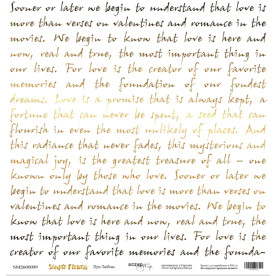 Sooner or later we begin to understand that love is
more than verses on valentines and romance in the
movies. We begin to know that love is here and
now, real and true, the most important thing in
our lives. For love is the creator of our favorite
memories and the foundation of our fondest
dreams. Love is a promise that is always kept, a
fortune that can never be spent, a seed that can
flourish in even the most unlikely of places. And
this radiance that never fades, this mysterious and
magical joy, is the greatest treasure of all - one
known only by those who love. Sooner or later we
begin to understand that love is more than verses on
valentines and romance in the movies. We begin to
know that love is here and now, real and true, the
most important thing in our lives. For love is the
creator of our favorite memories and the founda-